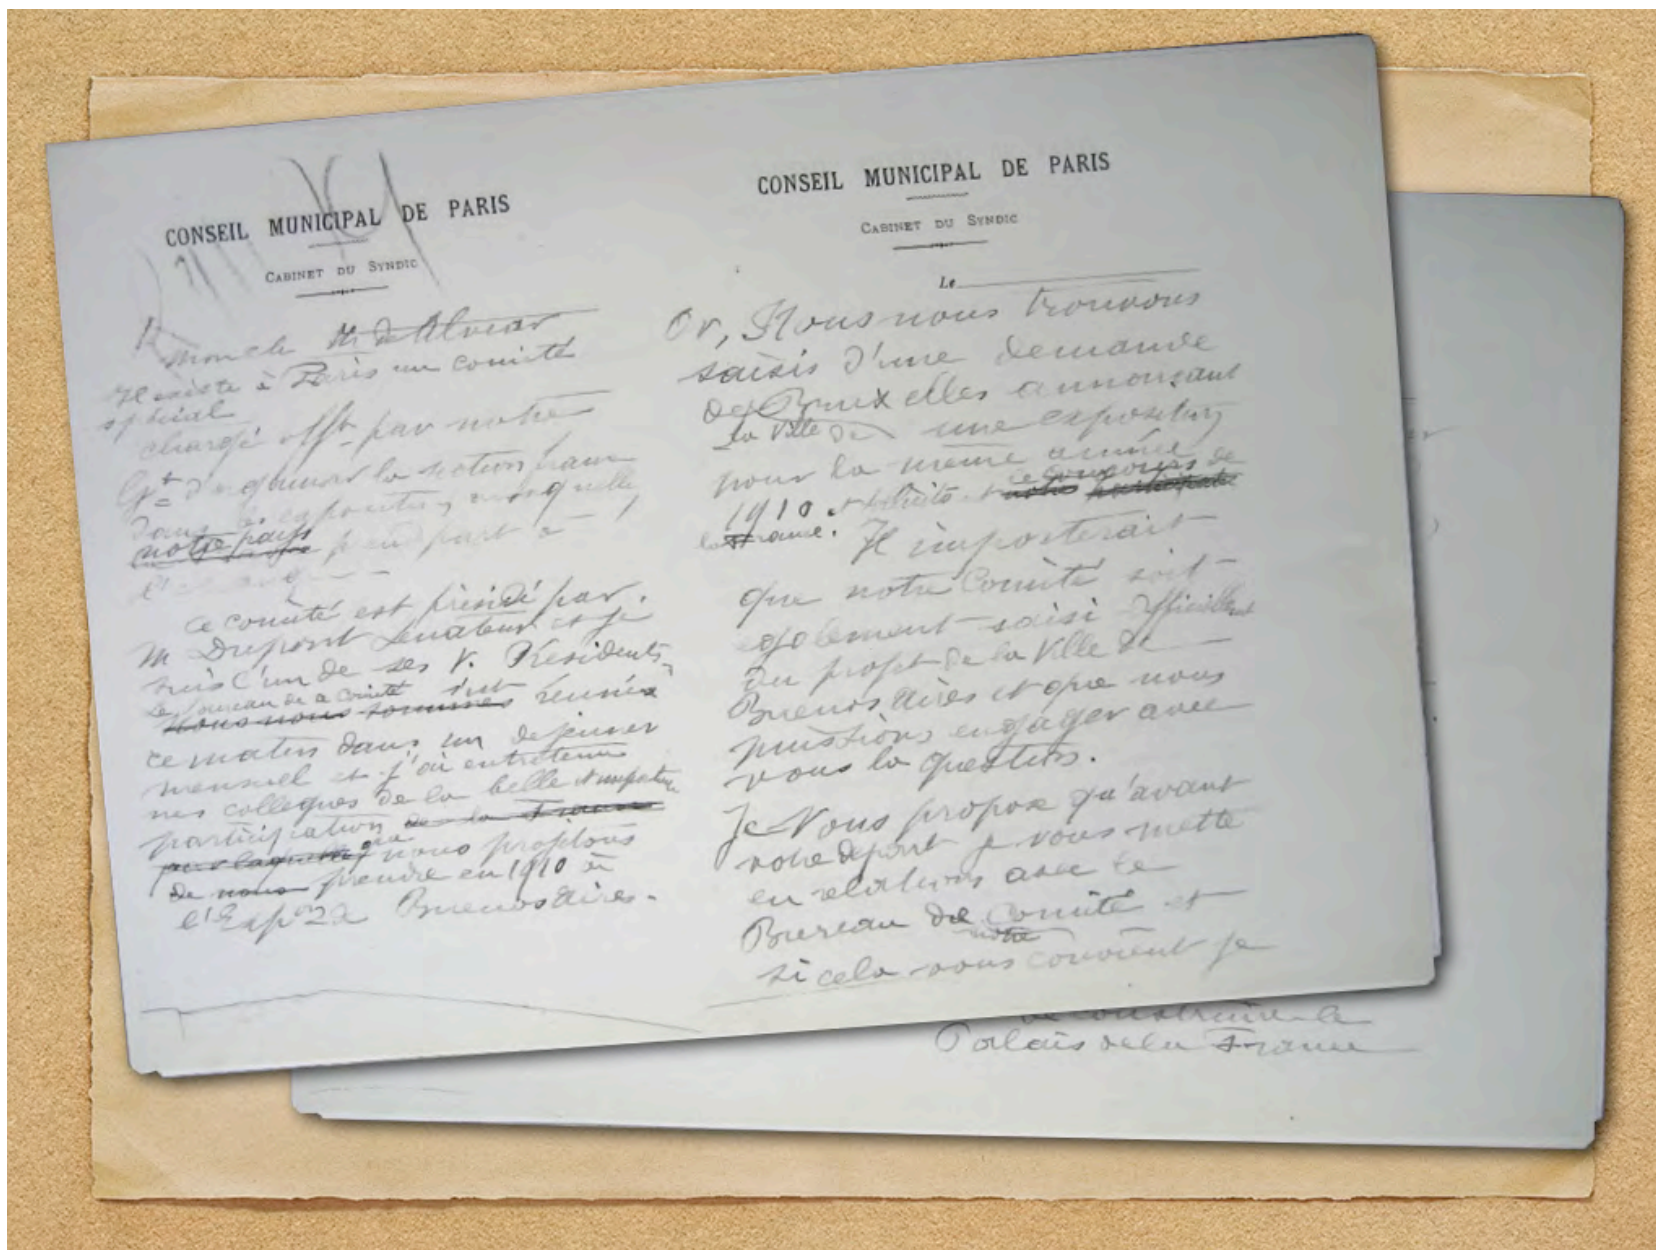 CONSEIL MUNICIPAL DE PARIS
CABINET DU SYNDIC
Mon ch M. de Alvear
Il existe à Paris un comité
spécial
chargé offt par notre
Gt d'organiser la section
dans les expositions
notre pays prend part à
l'
Ce comité est présidé par
M Dupont Senateur et je
suis l'un de ses V. Présidents
Le Bureau de ce comité s'est
Nous nous sommes réunis
ce matin dans un dejeuner
mensuel et j'ai entretenu
mes collegues de la belle et
participation de la France
par laquelle que nous profitons
de nous prendre en 1910 à
l'Expon de Buenos Aires.
CONSEIL MUNICIPAL DE PARIS
CABINET DU SYNDIC
Le
Or, Nous nous trouvons
saisis d'une demande
de Bruxelles annonçant
la Ville de une exposition
pour la même année
le concours de
1910 et sollicite notre
la France. Il importerait
que notre Comité soit
egalement saisi
du projet de la Ville de
Buenos Aires et que nous
puissions engager avec
vous la question.
Je Vous propose qu'avant
votre depart je vous mette
en relations avec le
Bureau de Comité et
notre
si cela vous convient je
de construire le
Palais de la France